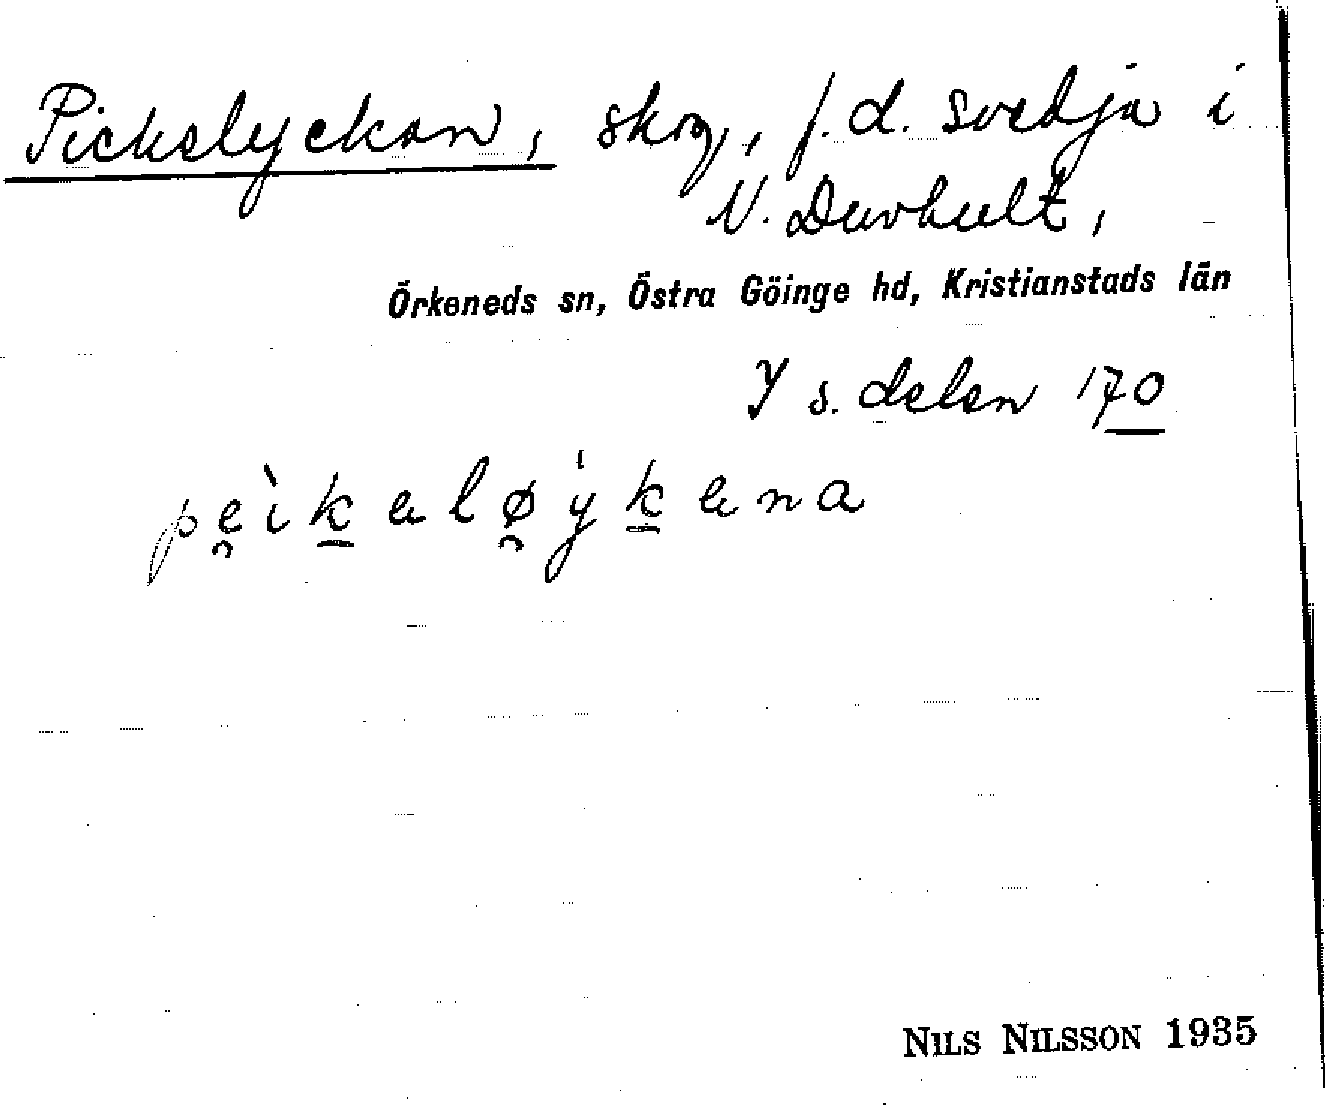 Pickslyckan, skog, f.d. svedja i
N. Duvhult,
Örkeneds sn, Östra Göinge hd, Kristianstads län
I s. delen 170
pe̯ìk̲alø̯ýk̲ana
NILS NILSSON 1935